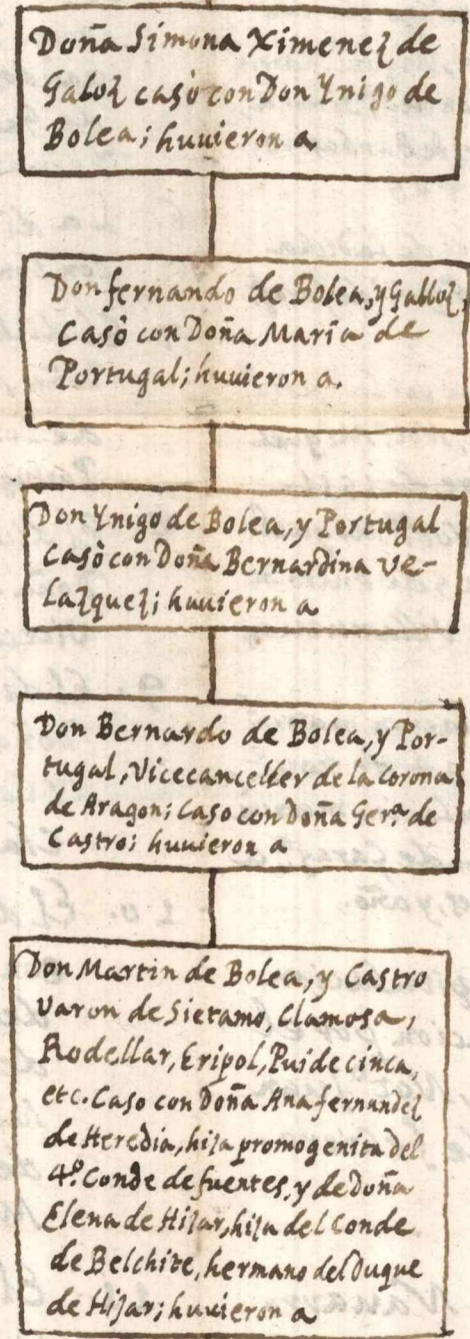 Doña Simona Ximenez de
Galoz casò con Don Ynigo de
Bolea; huuieron a
Don fernando de Bolea, y Galloz,
Casò con Doña Maria de
Portugal; huuieron a.
Don Ynigo de Bolea, y Portugal
Casò con Doña Bernardina Ve-
lazquez; huuieron a
Don Bernardo de Bolea, y Por-
tugal, Vicecanceller de la Corona
de Aragon; Caso con Doña Gerª de
Castro; huuieron a
Don Martin de Bolea, y Castro
Varon de Sietamo, Clamosa,
Rodellar, Eripol, Puidecinca,
etc. Caso con Doña Ana fernandez
de Heredia, hija promogenita del
4º Conde de fuentes, y de Doña
Elena de Hijar, hija del Conde
de Belchite, hermano del Duque
de Hijar; huuieron a